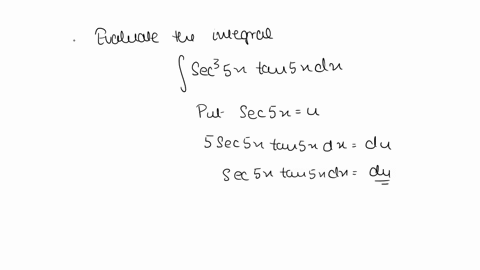 . Evaluate the integral
∫ Sec³ 5x tan 5x dx
Put Sec 5x = u
5 Sec 5x tan 5x dx = du
Sec 5x tan 5x dx = du